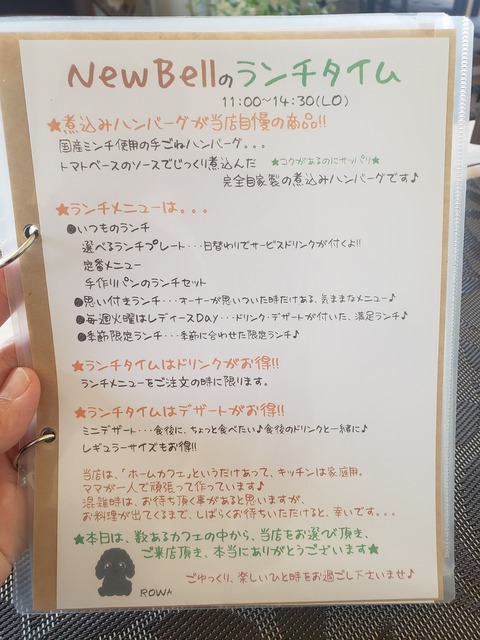 NewBellのランチタイム
11:00~14:30(LO)
★煮込みハンバーグが当店自慢の商品!!
国産ミンチ使用の手ごねハンバーグ。。。
トマトベースのソースでじっくり煮込んだ ★コクがあるのにサッパリ★
完全自家製の煮込みハンバーグです♪
★ランチメニューは。。。
●いつものランチ
選べるランチプレート・・・日替わりでサービスドリンクが付くよ!!
定番メニュー
手作りパンのランチセット
●思い付きランチ・・・オーナーが思いついた時だけある、気ままなメニュー♪
●毎週火曜はレディースDay・・・ドリンク・デザートが付いた、満足ランチ♪
●季節限定ランチ・・・季節に合わせた限定ランチ♪
★ランチタイムはドリンクがお得!!
ランチメニューをご注文の時に限ります。
★ランチタイムはデザートがお得!!
ミニデザート・・・食後に、ちょっと食べたい♪食後のドリンクと一緒に♪
レギュラーサイズもお得!!
当店は、「ホームカフェ」というだけあって、キッチンは家庭用。
ママが一人で頑張って作っています♪
混雑時は、お待ち頂く事があると思いますが、
お料理が出てくるまで、しばらくお待ちいただけると、幸いです。。。
★本日は、数あるカフェの中から、当店をお選び頂き、
ご来店頂き、本当にありがとうございます★
ごゆっくり、楽しいひと時をお過ごし下さいませ♪
ROWA